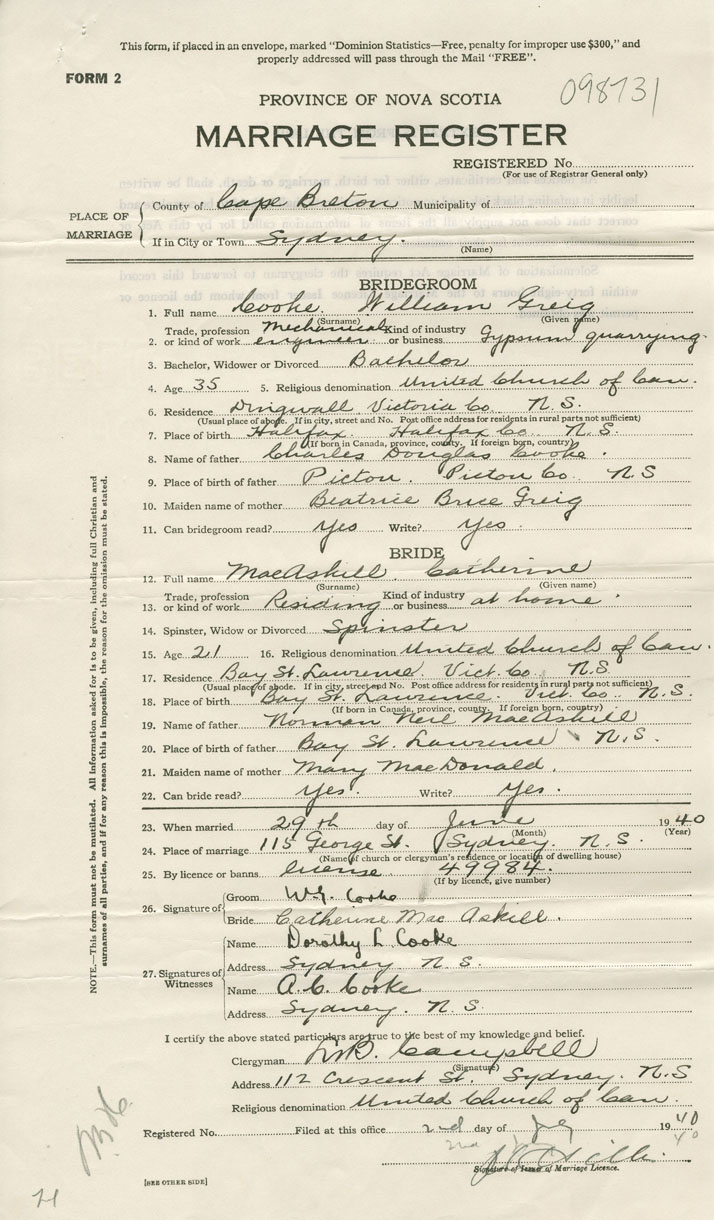 This form, if placed in an envelope, marked "Dominion Statistics—Free, penalty for improper use $300," and
properly addressed will pass through the Mail "FREE".
FORM 2
098731
PROVINCE OF NOVA SCOTIA
MARRIAGE REGISTER
REGISTERED No.
(For use of Registrar General only)
PLACE OF MARRIAGE
County of Cape Breton Municipality of
If in City or Town Sydney.
(Name)
BRIDEGROOM
1. Full name Cooke William Greig
(Surname) (Given name)
2. Trade, profession or kind of work Mechanical engineer Kind of industry or business Gypsum quarrying.
3. Bachelor, Widower or Divorced Bachelor
4. Age 35 5. Religious denomination United Church of Can.
6. Residence Dingwall Victoria Co. N.S.
(Usual place of abode. If in city, street and No. Post office address for residents in rural parts not sufficient)
7. Place of birth Halifax. Halifax Co. N.S.
(If born in Canada, province, county. If foreign born, country)
8. Name of father Charles Douglas Cooke.
9. Place of birth of father Picton. Picton Co. N S
10. Maiden name of mother Beatrice Bruce Greig
11. Can bridegroom read? Yes Write? Yes.
BRIDE
12. Full name MacAskill. Catherine
(Surname) (Given name)
13. Trade, profession or kind of work Residing Kind of industry or business at home.
14. Spinster, Widow or Divorced Spinster
15. Age 21 16. Religious denomination United Church of Can.
17. Residence Bay St. Lawrence. Vict. Co. N.S
(Usual place of abode. If in city, street and No. Post office address for residents in rural parts not sufficient)
18. Place of birth Bay St. Lawrence. Vict. Co. N.S.
(If born in Canada, province, county. If foreign born, country)
19. Name of father Norman Neil MacAskill
20. Place of birth of father Bay St. Lawrence N.S.
21. Maiden name of mother Mary MacDonald.
22. Can bride read? Yes. Write? Yes.
23. When married 29th day of June 1940
(Month) (Year)
24. Place of marriage 115 George St. Sydney. N.S.
(Name of church or clergyman's residence or location of dwelling house)
25. By licence or banns license 49984.
(If by licence, give number)
26. Signature of
Groom W.G. Cooke
Bride Catherine MacAskill.
27. Signatures of Witnesses
Name Dorothy L Cooke
Address Sydney N.S.
Name A.C. Cooke
Address Sydney. N.S.
I certify the above stated particulars are true to the best of my knowledge and belief.
Clergyman Campbell
(Signature)
Address 112 Crescent St. Sydney. N.S
Religious denomination United Church of Can.
Registered No. Filed at this office 2nd day of 1940
2nd 40
Signature of Issuer of Marriage Licence.
[SEE OTHER SIDE]
21
NOTE.—This form must not be mutilated. All information asked for is to be given, including full Christian and
surnames of all parties, and if for any reason this is impossible, the reason for the omission must be stated.